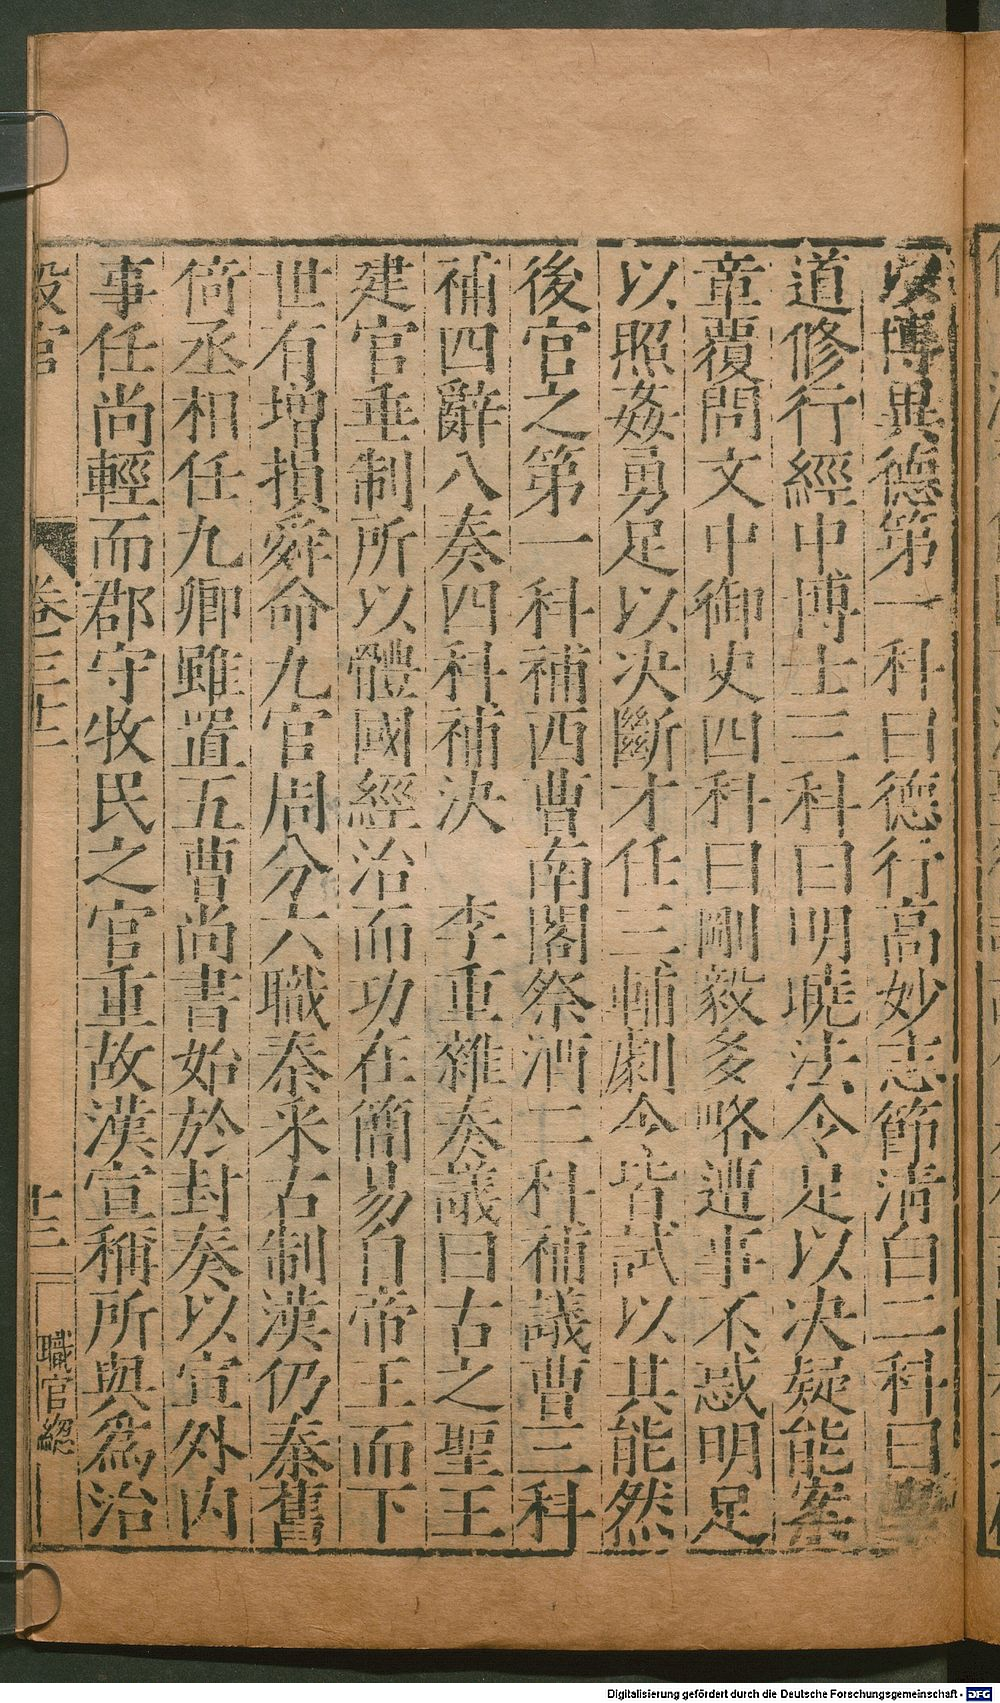 以博異德第一科曰德行高妙志節清白二科曰
道修行經中博士三科曰明曉法令足以決疑能案
章覆問文中御史四科曰剛毅多略遭事不惑明足
以照姦勇足以決斷才任三輔劇令皆試以其能然
後官之第一科補西曹南閣祭酒二科補議曹三科
補四辭八奏四科補決 李重雜奏議曰古之聖王
建官垂制所以體國經治而功在簡易自帝王而下
世有增損舜命九官周分六職秦采古制漢仍秦舊
倚丞相任九卿雖置五曹尚書始於封奏以宣外內
事任尚輕而郡守牧民之官重故漢宣稱所與為治
設官 卷三十二 十三 職官總
Digitalisierung gefördert durch die Deutsche Forschungsgemeinschaft - DFG